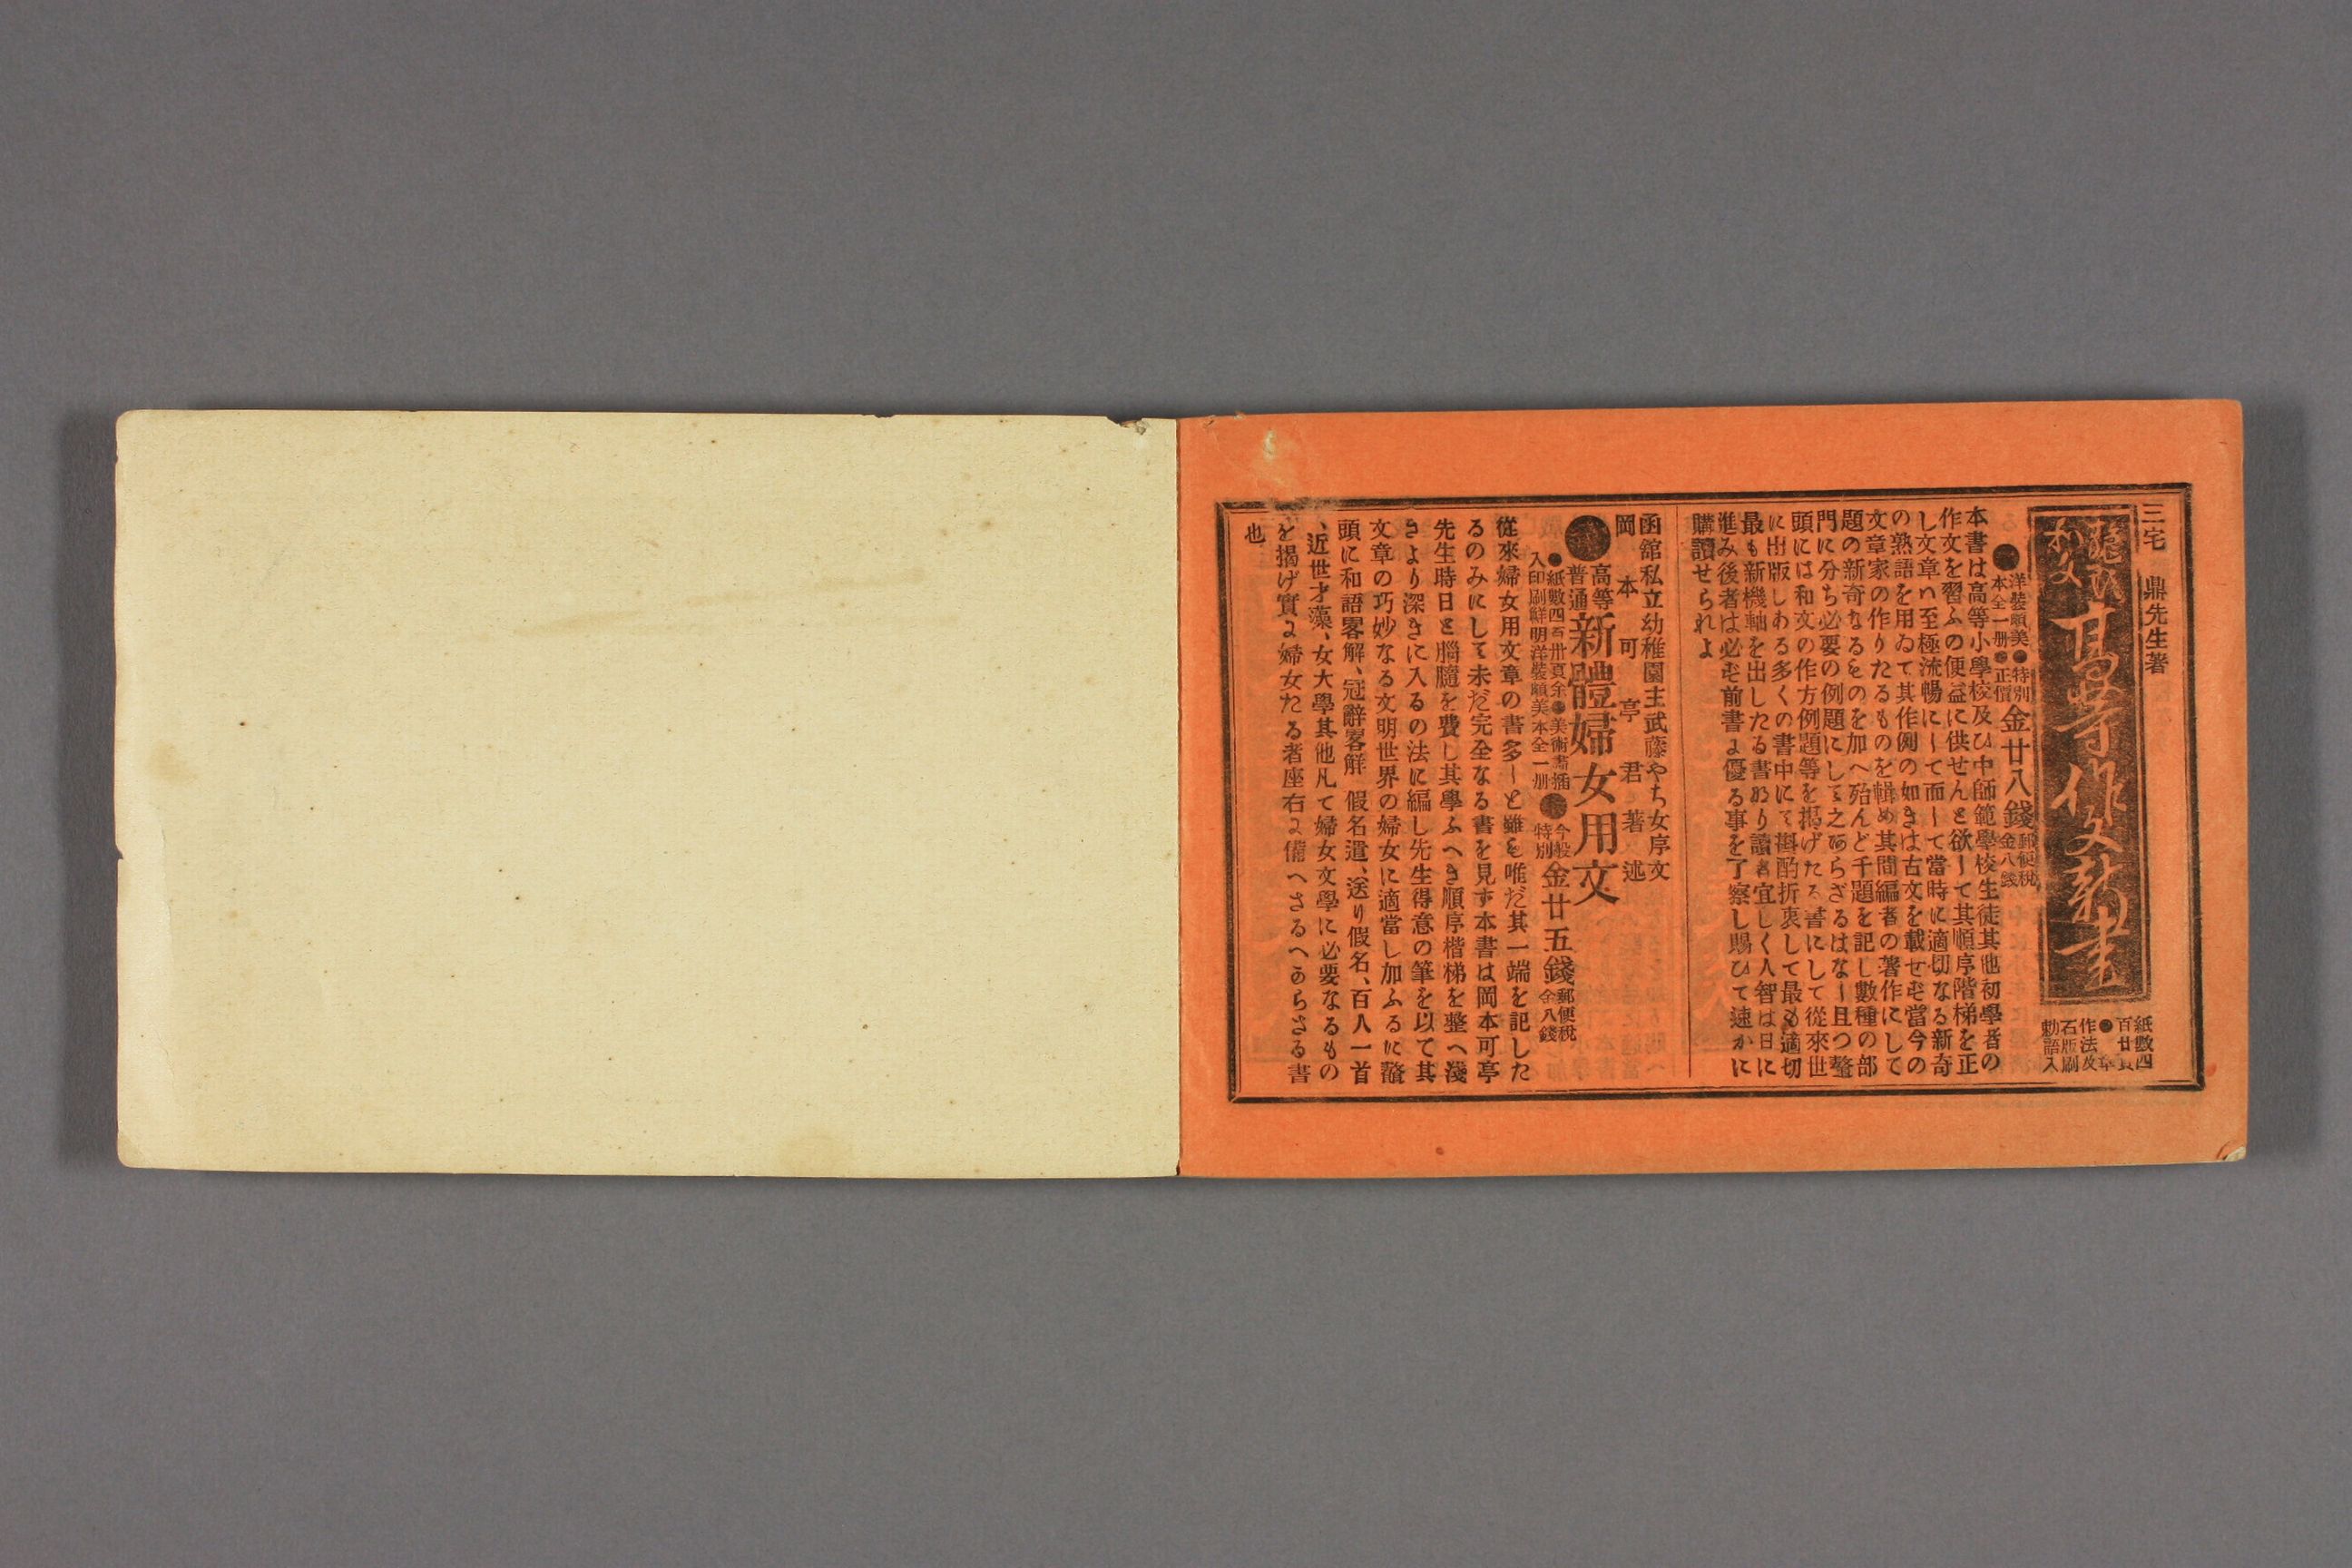 三宅 鼎先生著
和文 高等作文新書
紙數四百廿頁
作法及
石版刷
勅語入
●洋裝頗美●特別金廿八錢郵便税金八錢
本全一册●正價
本書は高等小學校及ひ中師範學校生徒其他初學者の
作文を習ふの便益に供せんと欲して其順序階梯を正
し文章い至極流暢にして而して當時に適切なる新奇
の熟語を用ゐて其作例の如きは古文を載せず當今の
文章家の作りたるものを輯め其間編者の著作にして
題の新奇なるものを加へ殆んど千題を記し數種の部
門に分ち必要の例題にして之あらざるはなし且つ鼇
頭には和文の作方例題等を掲げたる書にして從來世
に出版しある多くの書中にて斟酌折衷して最も適切
最も新機軸を出したる書あり讀者宜しく人智は日に
進み後者は必ず前書ょ優る事を了察し賜ひて速かに
購讀せられよ
函館私立幼稚園主武藤やち女序文
岡本可亭君著述
高等普通新體婦女用文
●紙數四百卅頁余●美術畵插
入印刷鮮明洋裝頗美本全一册
今般特別金廿五錢郵便税金八錢
從來婦女用文章の書多しと雖も唯だ其一端を記した
るのみにして未だ完全なる書を見ず本書は岡本可亭
先生時日と腦髓を費し其學ふへき順序楷梯を整へ淺
きより深きに入るの法に編し先生得意の筆を以て其
文章の巧妙なる文明世界の婦女に適當し加ふるに鼇
頭に和語畧解、冠辭畧解、假名遣、送り假名、百人一首
、近世才藻、女大學其他凡て婦女文學に必要なるもの
を揭げ實に婦女たる者座右に備へさるへからさる書
也